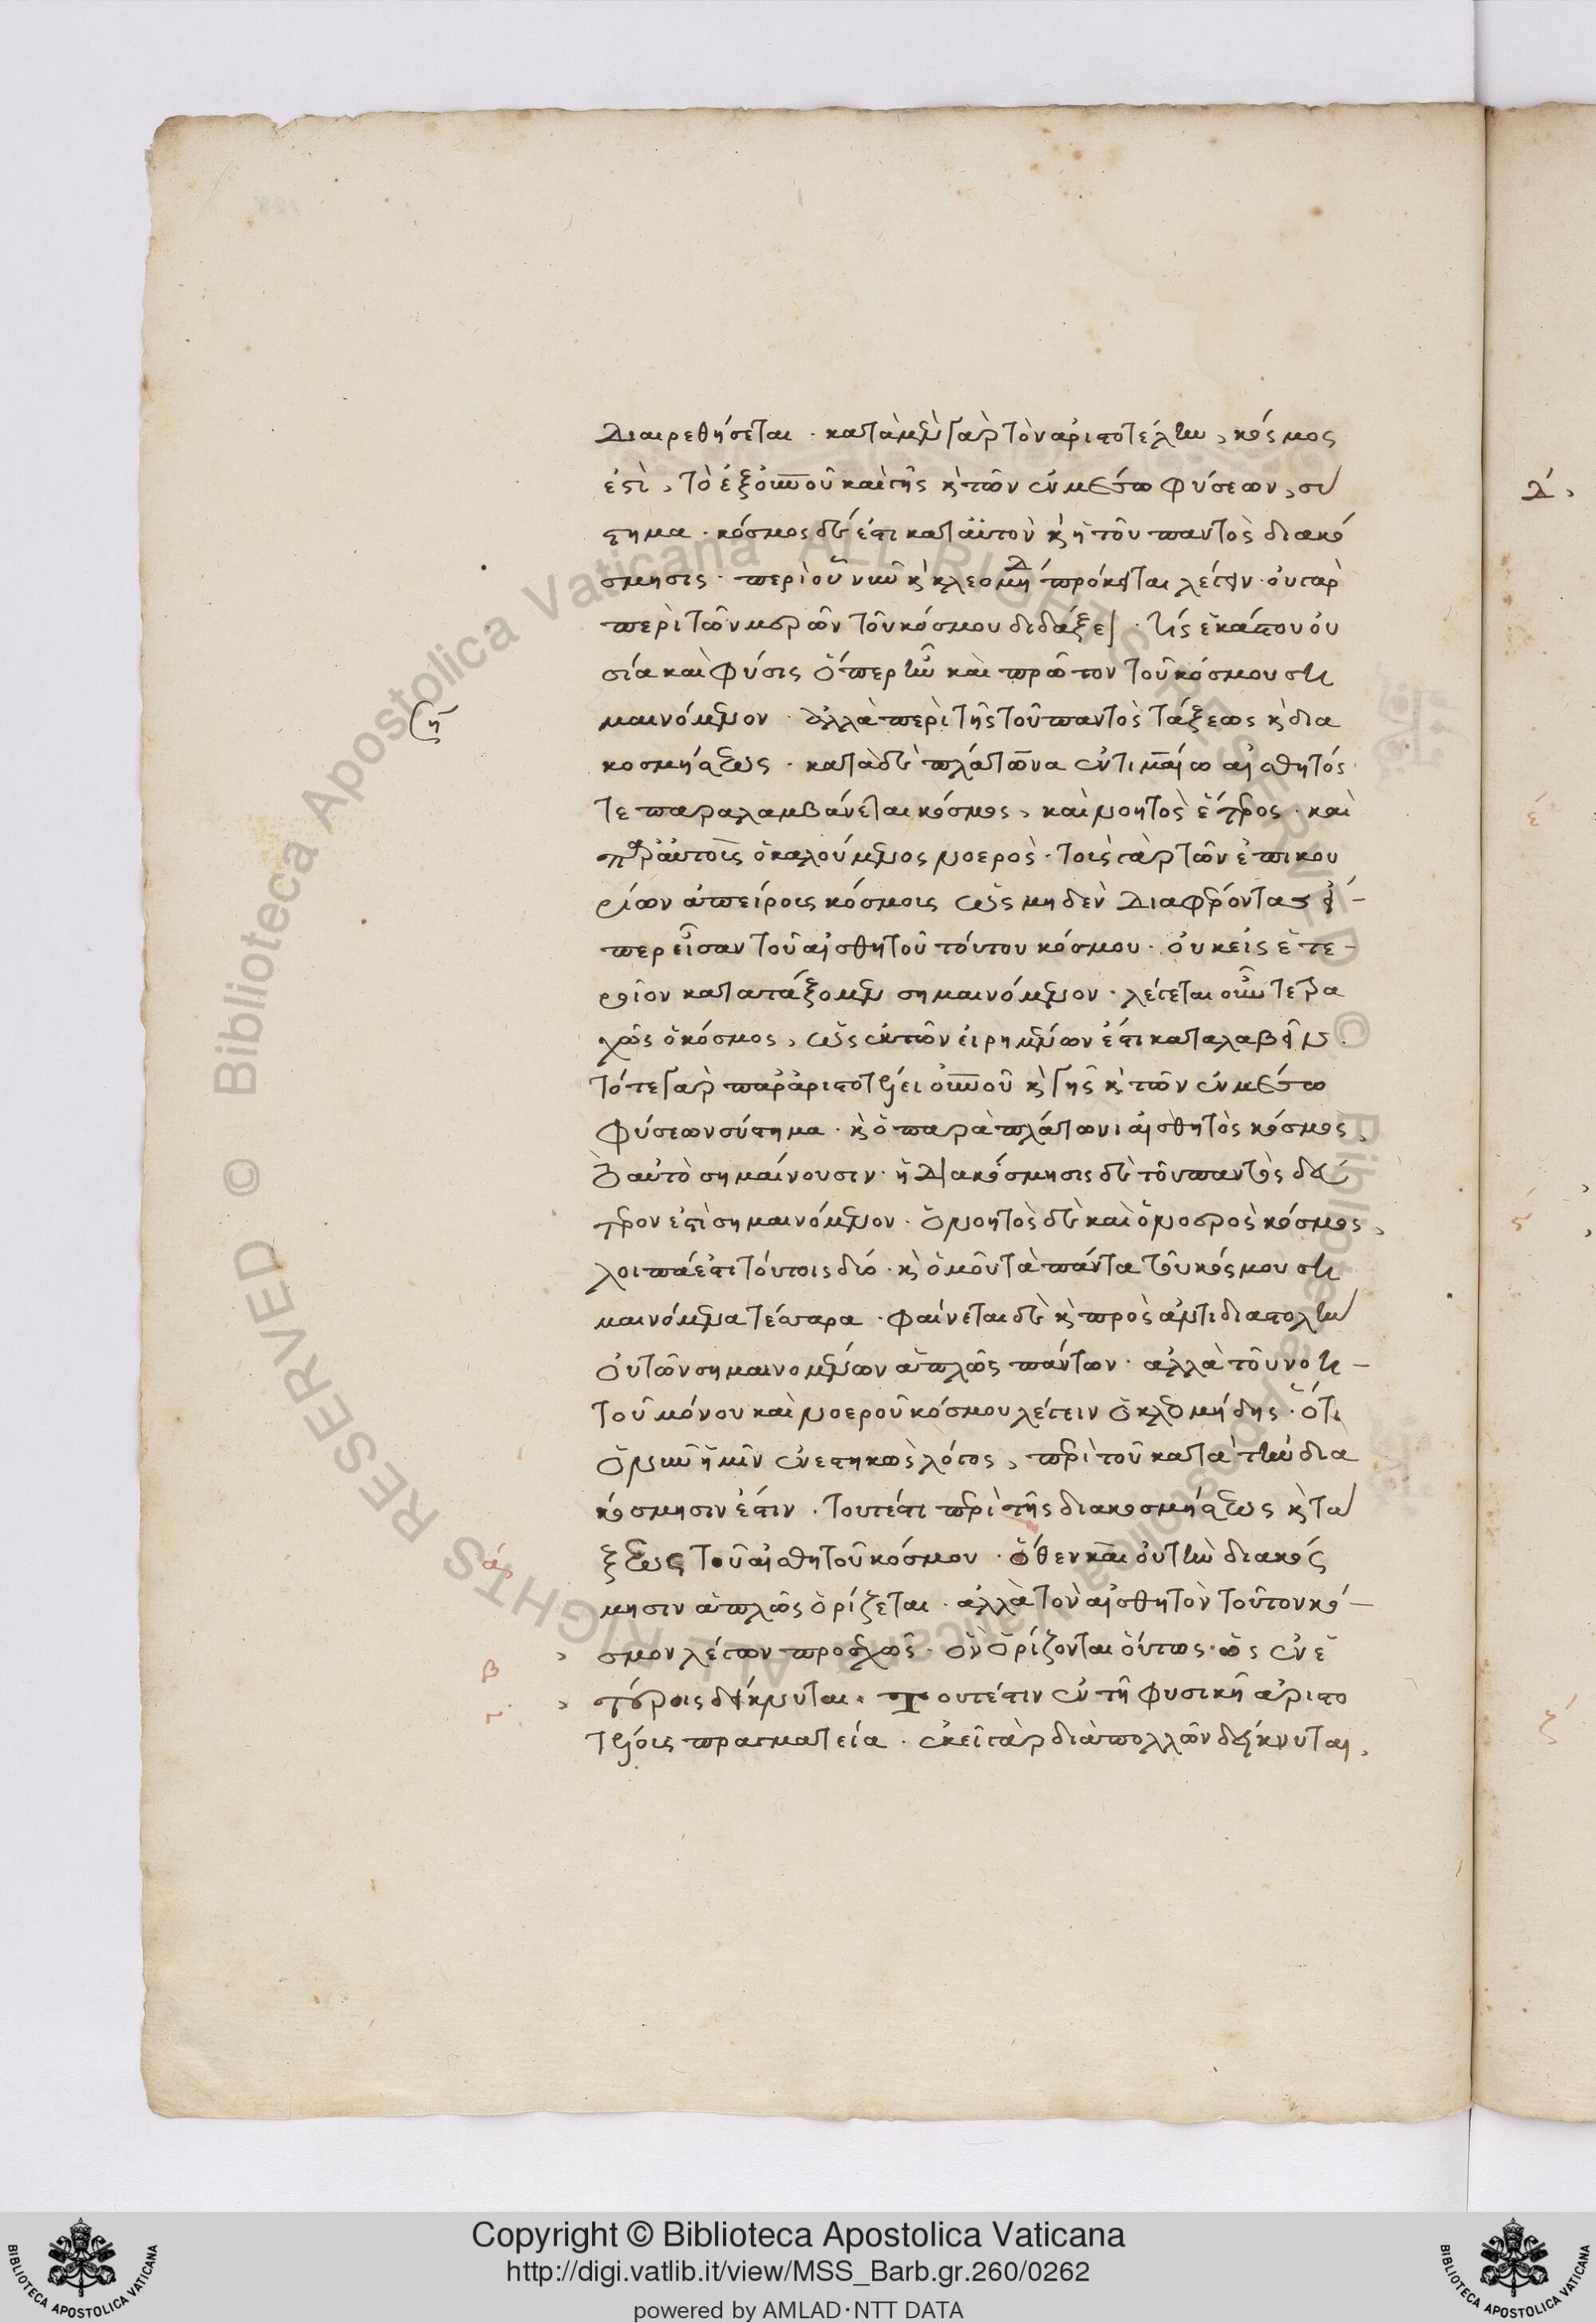 διαιρεθήσεται · κατὰ μὲν γὰρ τὸν ἀριστοτέλην, κόσμος
ἐστὶ, τὸ ἐξ οὐρανοῦ καὶ γῆς κ̀ τῶν ἐν μέσω φύσεων, σύ
στημα · κόσμος δέ ἐστι κατ' αὐτὸν κ̀ ἡ τοῦ παντὸς διακό
σμησις · περὶ οὗ νῦν κ̀ κλεομήδ πρόκειται λέγειν · οὐ γὰρ
περὶ τῶν μερῶν τοῦ κόσμου διδάξει · τίς ἑκάστου οὐ
σία καὶ φύσις ὅπερ ἦν καὶ πρῶτον τοῦ κόσμου ση
μαινόμενον · ἀλλὰ περὶ τῆς τοῦ παντὸς τάξεως κ̀ δια
κοσμήσεως · κατὰ δὲ πλάτωνα ἐν τιμαίω αἰσθητός
τε παραλαμβάνεται κόσμος, καὶ νοητὸς ἕτερος · καὶ
παρ' αὐτοῖς ὁ καλούμενος νοερὸς · τοὺς γὰρ τῶν ἐπικου
ρίων ἀπείροις κόσμοις ὡς μηδὲν διαφέροντας εἴ-
περ εἶσαν τοῦ αἰσθητοῦ τούτου κόσμου · οὐκ εἰς ἕτε-
ροῖον κατατάξομεν σημαινόμενον · λέγεται οὖν τετρα
χῶς ὁ κόσμος, ὡς ἐκ τῶν εἰρημένων ἐστι καταλαβεῖν.
τό τε γὰρ παρ' ἀριστοτέλει οὐρανοῦ κ̀ γῆς κ̀ τῶν ἐν μέσω
φύσεων σύστημα · κ̀ ὁ παρὰ πλάτωνι αἰσθητὸς κόσμος,
τὸ αὐτὸ σημαίνουσιν · ἡ διακόσμησις δὲ τοῦ παντὸς δεύ
τερον ἐστὶ σημαινόμενον · ὁ νοητὸς δὲ καὶ ὁ νοερὸς κόσμος,
λοιπά ἐστι τούτοις δύο · κ̀ ὁμοῦ τὰ πάντα τοῦ κόσμου ση
μαινόμενα τέσσαρα · φαίνεται δὲ κ̀ πρὸς ἀντιδιαστολὴν
οὐ τῶν σημαινομένων ἁπλῶς πάντων · ἀλλὰ τοῦ νοη-
τοῦ μόνου καὶ νοεροῦ κόσμου λέγειν ὁ κλεομήδης · ὅτι
ὁ νῦν ἡμῖν ἐνεστηκὼς λόγος, περὶ τοῦ κατὰ τὴν δια
κόσμησιν ἐστιν · τουτέστι περὶ τῆς διακοσμήσεως κ̀ τά
ξεως τοῦ αἰσθητοῦ κόσμου · ὅθεν καὶ οὐ τὴν διακόσ
μησιν ἁπλῶς ὁρίζεται · ἀλλὰ τὸν αἰσθητὸν τοῦτον κό-
σμον λέγων προδήλως · ὃν ὁρίζονται οὕτως · ὡς ἐν ἑ
τέροις δείκνυται · τουτέστιν ἐν τῆ φυσικῆ ἀριστο
τέλους πραγματεία · ἐκεῖ γὰρ διὰ πολλῶν δείκνυται,
ση
α
β
δ
ε
ς
ζ
Copyright © Biblioteca Apostolica Vaticana
http://digi.vatlib.it/view/MSS_Barb.gr.260/0262
powered by AMLAD·NTT DATA
BIBLIOTECA APOSTOLICA VATICANA
BIBLIOTECA APOSTOLICA VATICANA
© Biblioteca Apostolica Vaticana ALL RIGHTS RESERVED